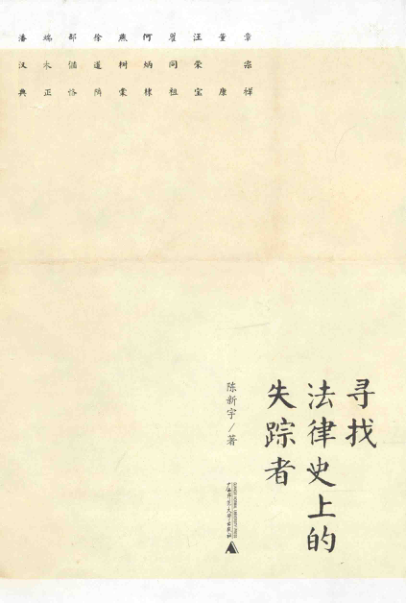 章宗祥
董康
汪荣宝
瞿同祖
何炳棣
燕树棠
徐道隣
邵循恪
端木正
潘汉典
寻找
法律史上的
失踪者
陈新宇/著
广西师范大学出版社